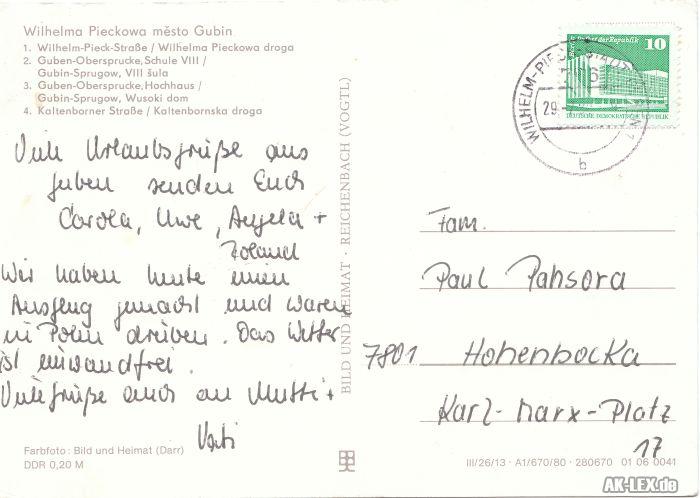 Wilhelma Pieckowa město Gubin
1. Wilhelm-Pieck-Straße / Wilhelma Pieckowa droga
2. Guben-Obersprucke, Schule VIII /
Gubin-Sprugow, VIII šula
3. Guben-Obersprucke, Hochhaus /
Gubin-Sprugow, Wusoki dom
4. Kaltenborner Straße / Kaltenbornska droga
Viele Urlaubsgrüße aus
Guben senden Euch
Carola, Uwe, Angela +
Roland
Wir haben heute einen
Ausflug gemacht und waren
in Polen drüben. Das Wetter
ist einwandfrei.
Viele Grüße auch an Mutti +
Vati
Farbfoto: Bild und Heimat (Darr)
DDR 0,20 M
BILD UND HEIMAT · REICHENBACH (VOGTL)
10
DEUTSCHE DEMOKRATISCHE REPUBLIK
WILHELM-PIECK-STADT
29.
b
Fam.
Paul Pahsora
7801 Hohenbocka
Karl-Marx-Platz
17
III/26/13 · A1/670/80 · 280670 01 06 0041
AK-LEX.de